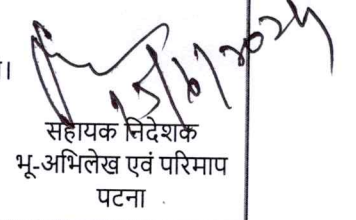 ।
सहायक निदेशक
भू-अभिलेख एवं परिमाप
पटना